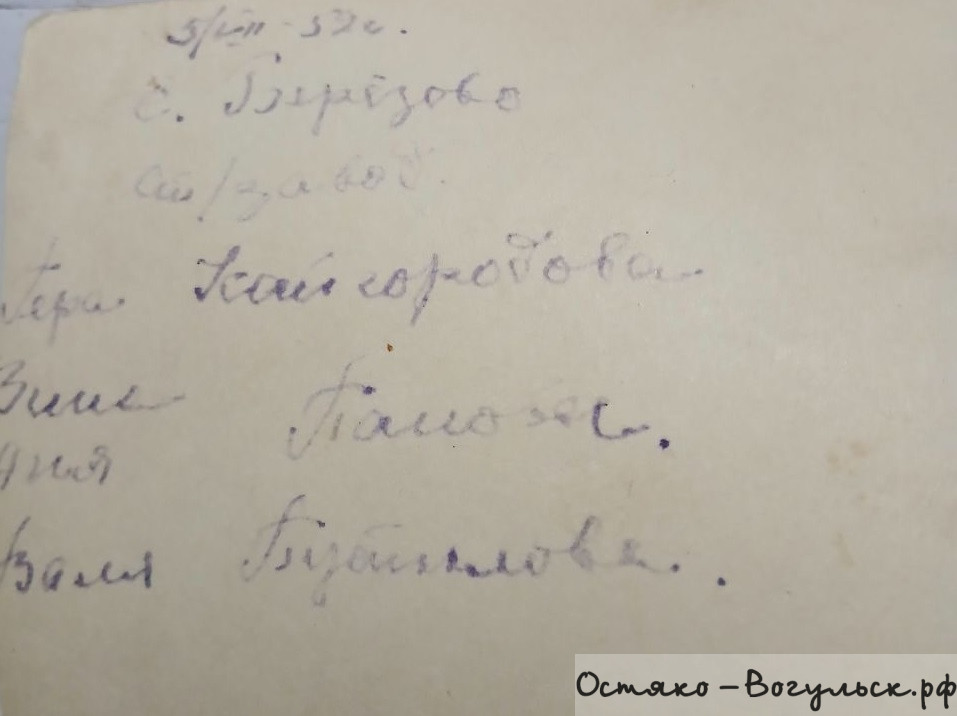 5/VIII-57г.
с. Берёзово
ст/завод.
Гера Кайгородова
Зина Панова.
Аня
Валя Путилова.
Остяко-Вогульск.рф